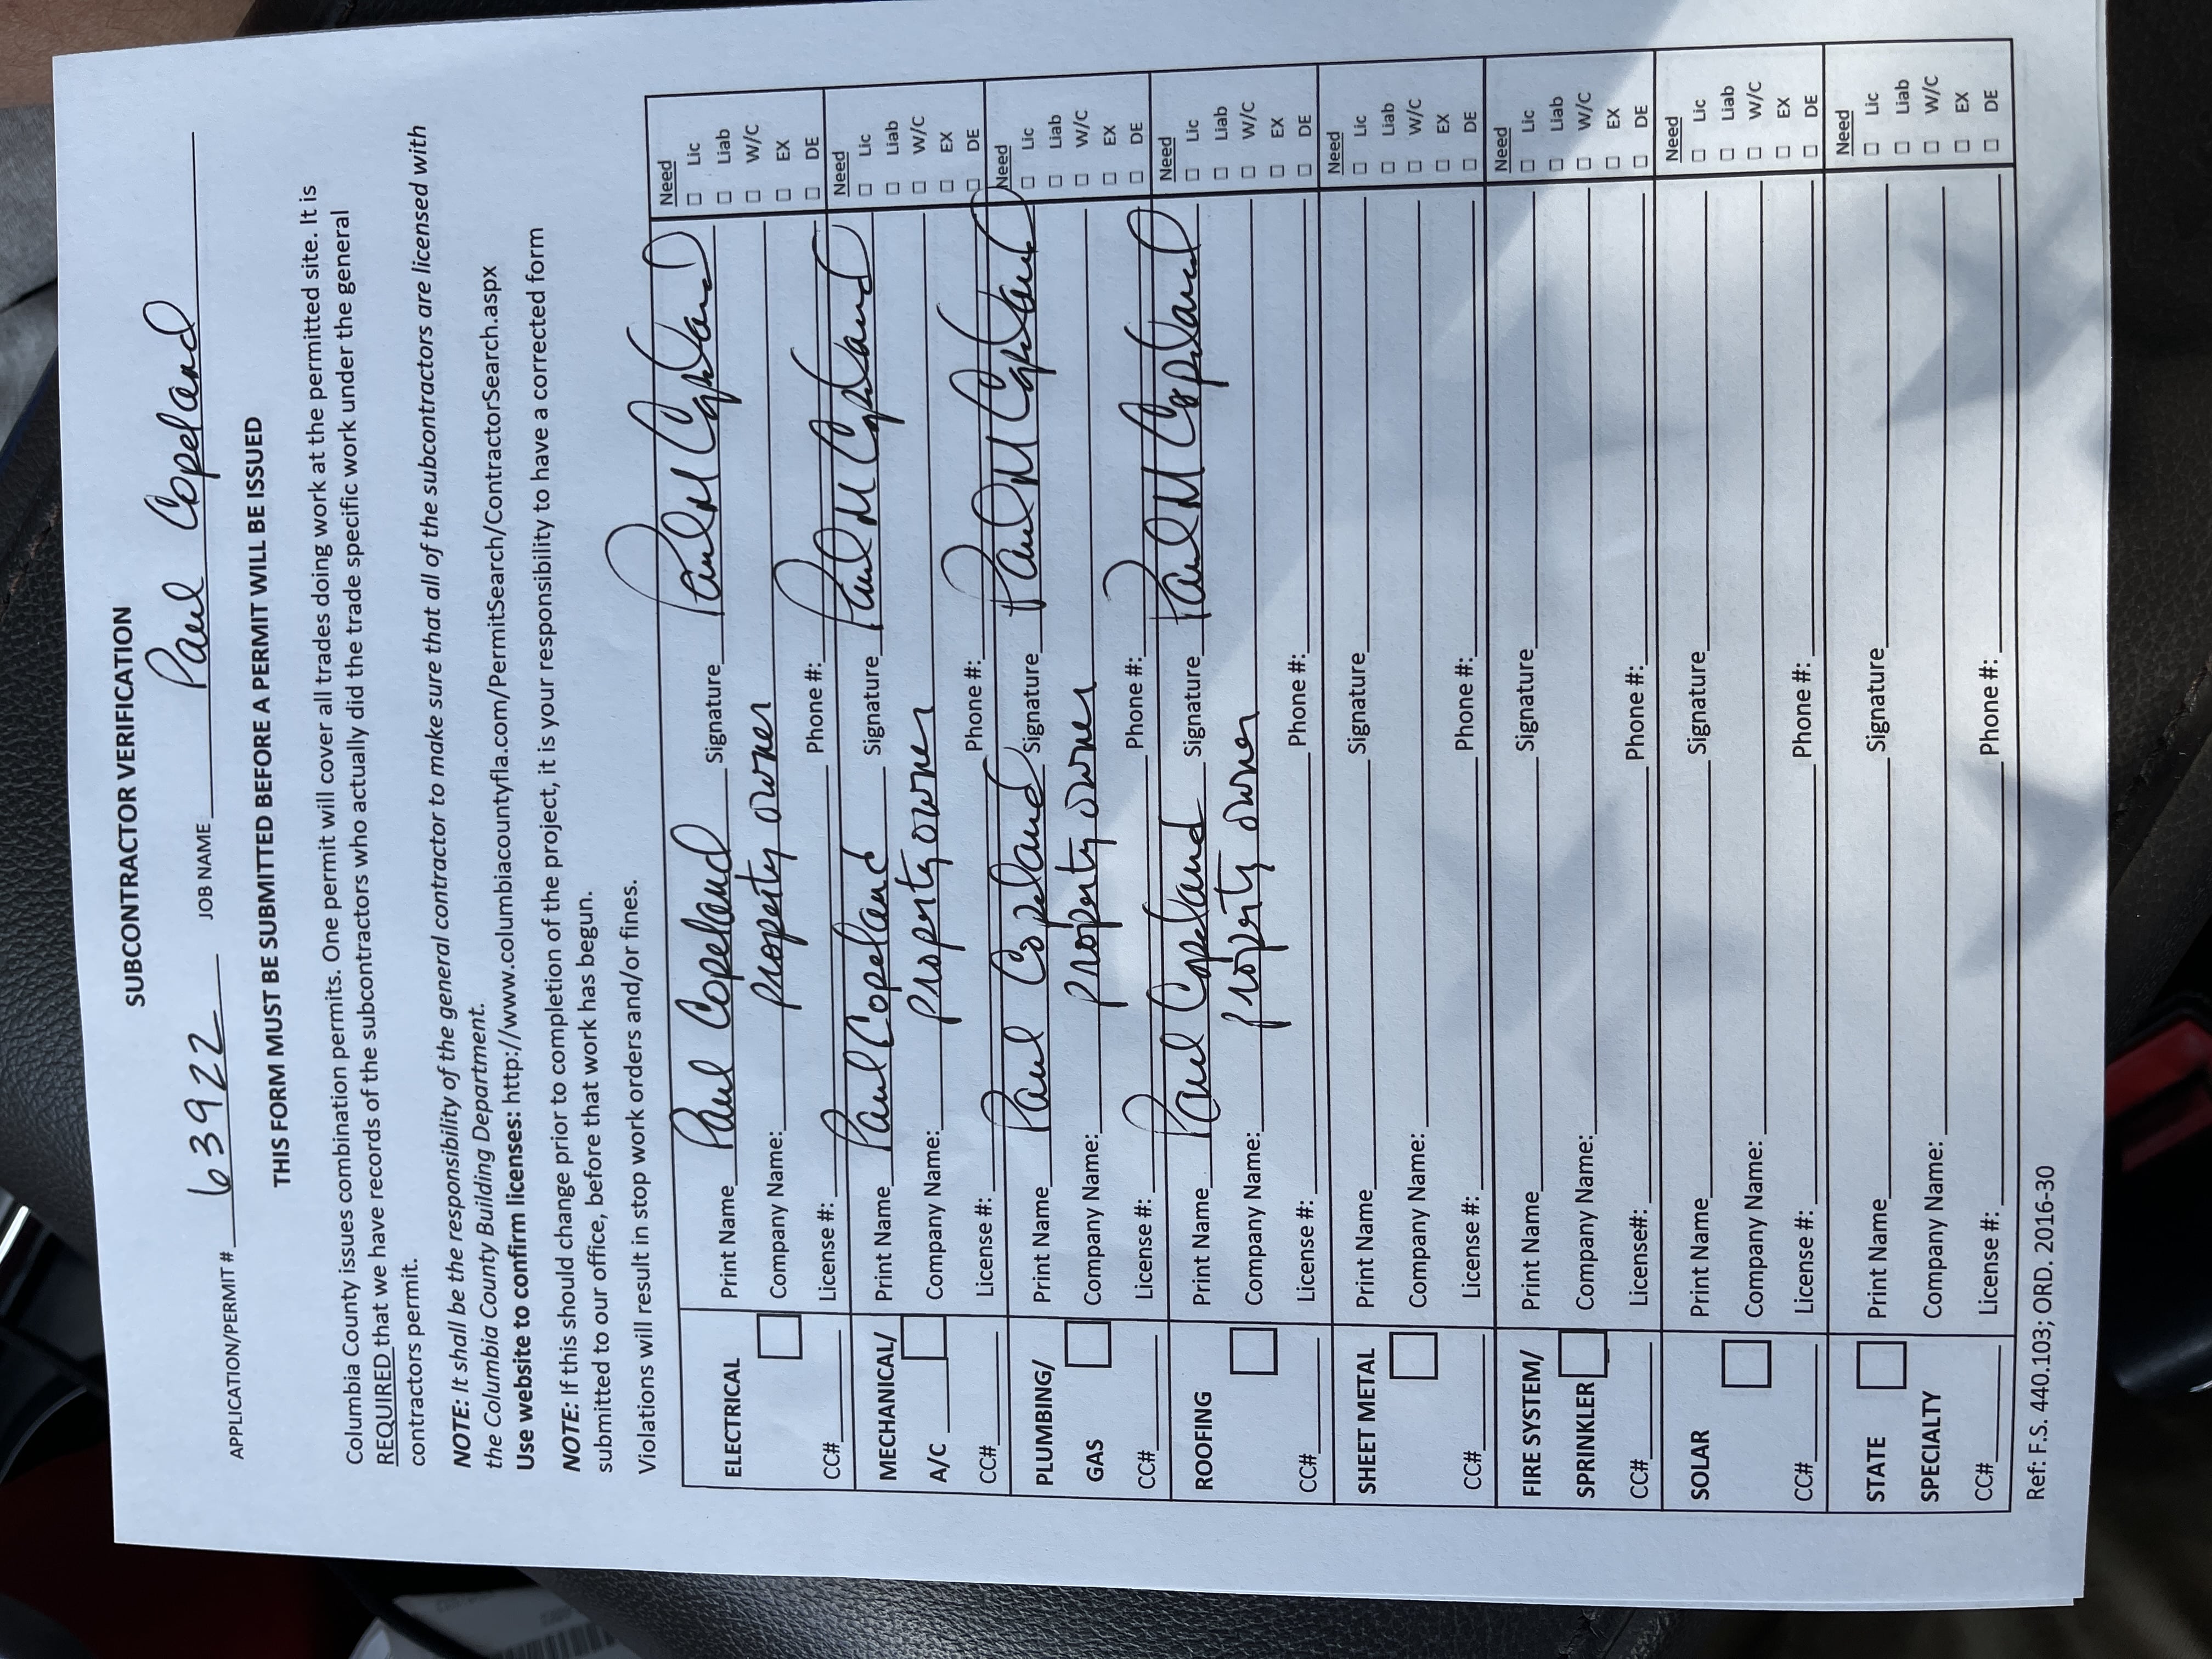 SUBCONTRACTOR VERIFICATION
APPLICATION/PERMIT # 63922 JOB NAME Paul Copeland
THIS FORM MUST BE SUBMITTED BEFORE A PERMIT WILL BE ISSUED
Columbia County issues combination permits. One permit will cover all trades doing work at the permitted site. It is
REQUIRED that we have records of the subcontractors who actually did the trade specific work under the general
contractors permit.
NOTE: It shall be the responsibility of the general contractor to make sure that all of the subcontractors are licensed with
the Columbia County Building Department.
Use website to confirm licenses: http://www.columbiacountyfla.com/PermitSearch/ContractorSearch.aspx
NOTE: If this should change prior to completion of the project, it is your responsibility to have a corrected form
submitted to our office, before that work has begun.
Violations will result in stop work orders and/or fines.
ELECTRICAL Print Name Paul Copeland Signature Paul M Copeland Need
□ Lic
Company Name: property owner □ Liab
□ W/C
□ EX
CC# License #: Phone #: □ DE
MECHANICAL/ Print Name Paul Copeland Signature Paul M Copeland Need
□ Lic
A/C Company Name: property owner □ Liab
□ W/C
□ EX
CC# License #: Phone #: □ DE
PLUMBING/ Print Name Paul Copeland Signature Paul M Copeland Need
□ Lic
GAS Company Name: property owner □ Liab
□ W/C
□ EX
CC# License #: Phone #: □ DE
ROOFING Print Name Paul Copeland Signature Paul M Copeland Need
□ Lic
Company Name: property owner □ Liab
□ W/C
□ EX
CC# License #: Phone #: □ DE
SHEET METAL Print Name Signature Need
□ Lic
Company Name: □ Liab
□ W/C
□ EX
CC# License #: Phone #: □ DE
FIRE SYSTEM/ Print Name Signature Need
□ Lic
SPRINKLER Company Name: □ Liab
□ W/C
□ EX
CC# License#: Phone #: □ DE
SOLAR Print Name Signature Need
□ Lic
Company Name: □ Liab
□ W/C
□ EX
CC# License #: Phone #: □ DE
STATE Print Name Signature Need
□ Lic
SPECIALTY Company Name: □ Liab
□ W/C
□ EX
CC# License #: Phone #: □ DE
Ref: F.S. 440.103; ORD. 2016-30